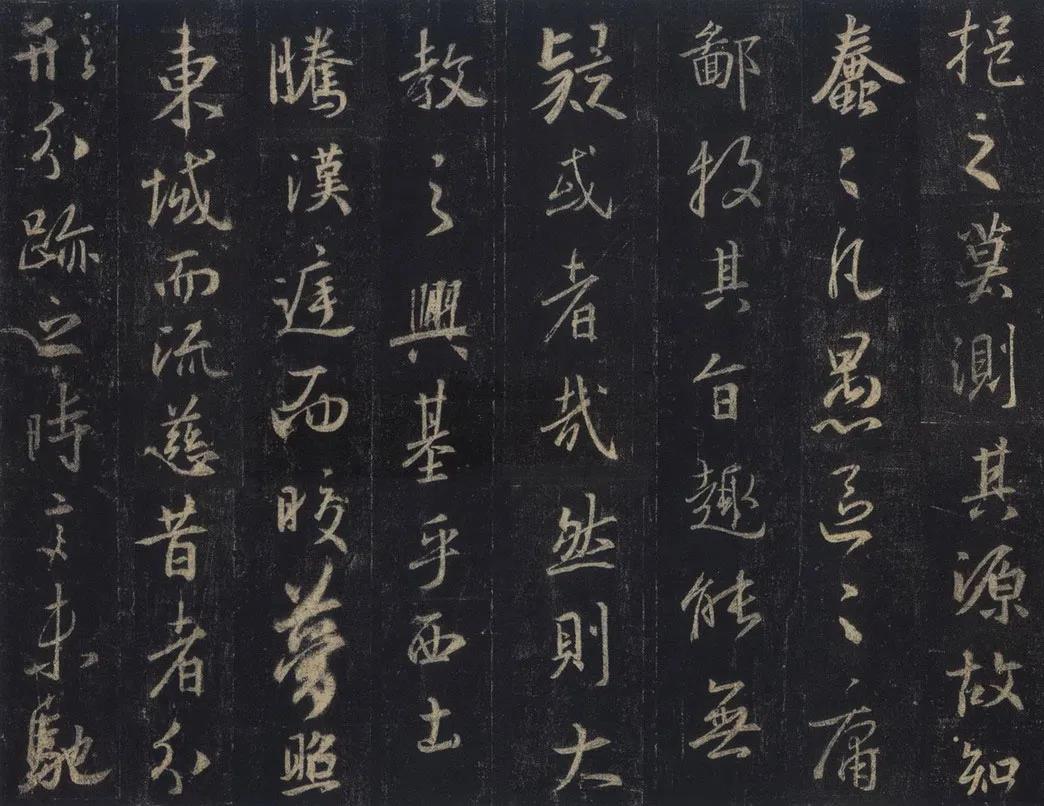 挹之莫測其源故知
蠢〻凡愚區〻庸
鄙投其旨趣能無
疑或者哉然則大
教之興基乎西土
騰漢庭而晈夢照
東域而流慈昔者分
形分跡之時言未馳